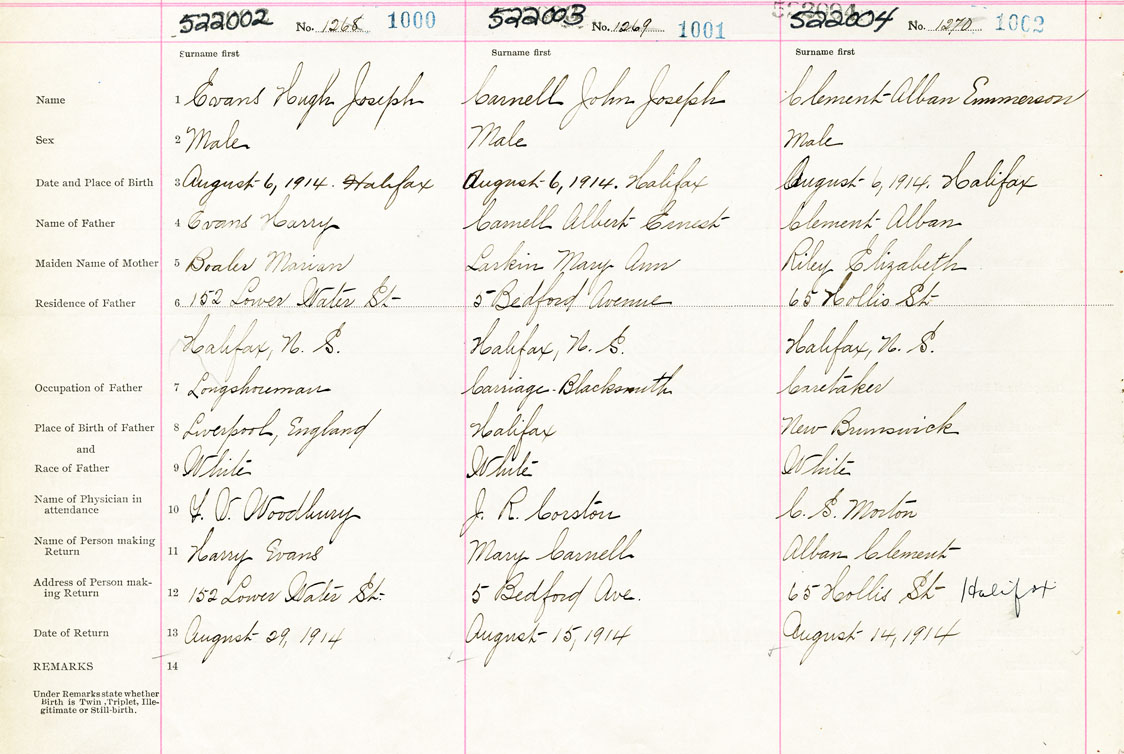 522002 No. 1268 1000 522003 No. 1269 1001 522004 No. 1270 1002
Surname first Surname first Surname first
Name 1 Evans Hugh Joseph Carnell John Joseph Clement Alban Emmerson
Sex 2 Male Male Male
Date and Place of Birth 3 August 6, 1914. Halifax August 6, 1914. Halifax August 6, 1914. Halifax
Name of Father 4 Evans Harry Carnell Albert Ernest Clement Alban
Maiden Name of Mother 5 Boaler Marian Larkin Mary Ann Riley Elizabeth
Residence of Father 6 152 Lower Water St 5 Bedford Avenue 65 Hollis St
Halifax, N. S. Halifax, N. S. Halifax, N. S.
Occupation of Father 7 Longshoreman Carriage Blacksmith Caretaker
Place of Birth of Father 8 Liverpool, England Halifax New Brunswick
and
Race of Father 9 White White White
Name of Physician in
attendance 10 Woodbury J. R. Corston C. S. Morton
Name of Person making
Return 11 Harry Evans Mary Carnell Alban Clement
Address of Person mak-
ing Return 12 152 Lower Water St. 5 Bedford Ave. 65 Hollis St Halifax
Date of Return 13 August 29, 1914 August 15, 1914 August 14, 1914
REMARKS 14
Under Remarks state whether
Birth is Twin, Triplet, Ille-
gitimate or Still-birth.